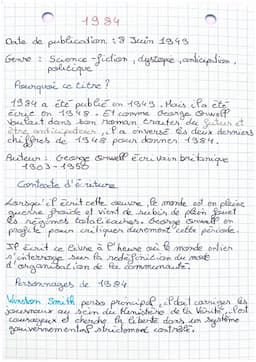 1984
Date de publication : 8 Juin 1949
Genre : Science-fiction, dystopie, anticipation,
politique
Pourquoi ce titre ?
1984 a été publié en 1949. Mais il a été
écrit en 1948. Et comme George Orwell
voulait dans son roman traiter du futur et
être anticipateur, il a inversé les deux derniers
chiffres de 1948 pour donner 1984.
Auteur : George Orwell Écrivain britanique
1903-1950
Contexte d'écriture
Lorsqu'il écrit cette œuvre, le monde est en pleine
guerre froide et vient de subir de plein fouet
les régimes totalitaires. George Orwell en
profite pour critiquer durement cette période.
Il écrit ce livre à l'heure où le monde entier
s'interroge sur la redéfinition du mode
d'organisation de la communauté.
Personnages de 1984
Winston Smith perso principal, il doit corriger les
journaux au sein du Ministère de la Vérité, il est
courageux et cherche la liberté dans un système
gouvernemental strictement contrôlé.